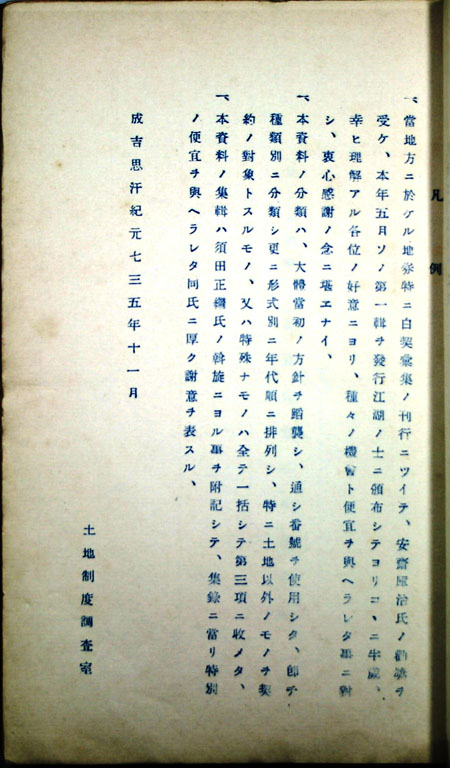 凡例
一、當地方ニ於ケル地券特ニ白契彙集ノ刊行ニツイテ、安齋庫治氏ノ勸誘ヲ
受ケ、本年五月ソノ第一輯ヲ發行江湖ノ士ニ頒布シテヨリココニ半歳、
幸ヒ理解アル各位ノ好意ニヨリ、種々ノ機會ト便宜ヲ與ヘラレタ事ニ對
シ、衷心感謝ノ念ニ堪エナイ、
一、本資料ノ分類ハ、大體當初ノ方針ヲ蹈襲シ、通シ番號ヲ使用シタ、卽チ
種類別ニ分類シ更ニ形式別ニ年代順ニ排列シ、特ニ土地以外ノモノヲ契
約ノ對象トスルモノ、又ハ特殊ナモノハ全テ一括シテ第三項ニ收メタ、
一、本資料ノ集輯ハ須田正繼氏ノ斡旋ニヨル事ヲ附記シテ、集錄ニ當リ特別
ノ便宜ヲ與ヘラレタ同氏ニ厚ク謝意ヲ表スル、
成吉思汗紀元七三五年十一月
土地制度調査室